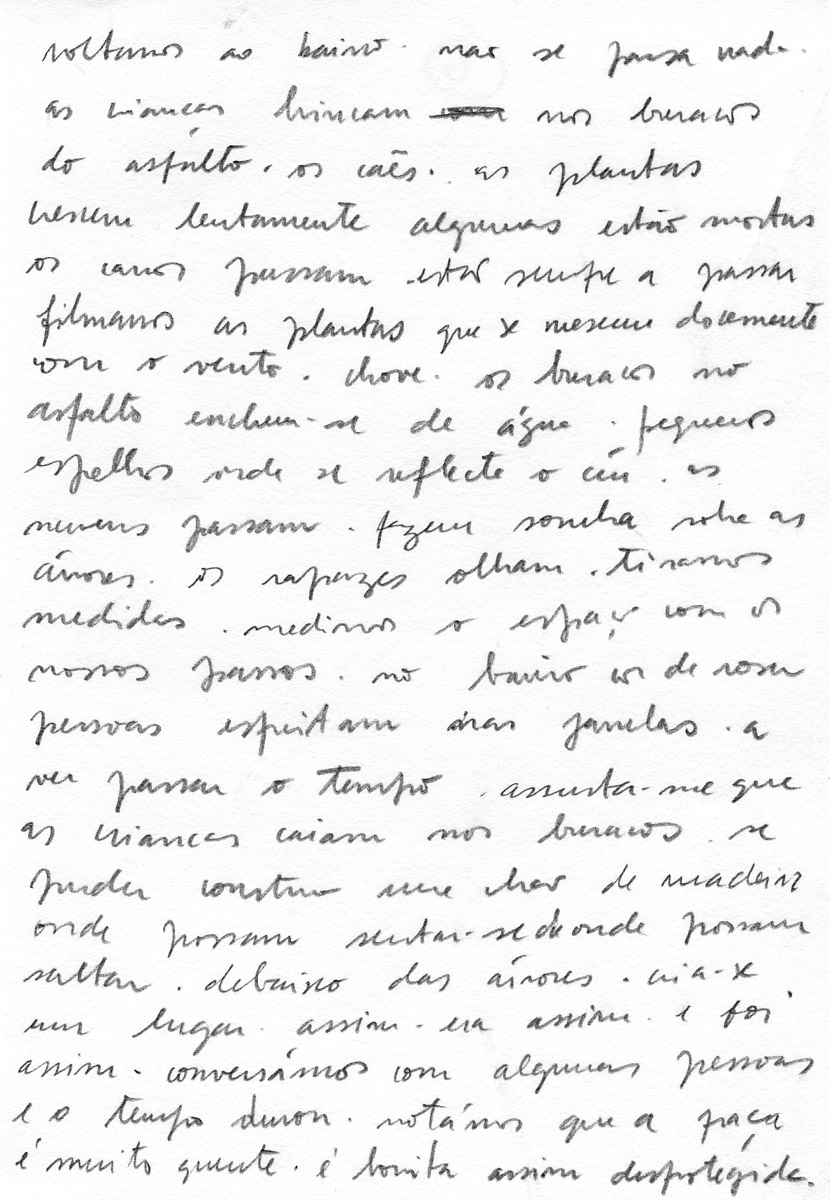 voltamos ao bairro. não se passa nada.
as crianças brincam nos buracos
do asfalto. os cães. as plantas
crescem lentamente algumas estão mortas
os carros passam. estão sempre a passar
filmamos as plantas que se mexem docemente
com o vento. chove. os buracos no
asfalto enchem-se de água. pequenos
espelhos onde se reflecte o céu. as
nuvens passam. fazem sombra sobre as
árvores. os rapazes olham. tiramos
medidas. medimos o espaço com os
nossos passos. no bairro cor de rosa
pessoas espreitam nas janelas. a
ver passar o tempo. assusta-me que
as crianças caiam nos buracos. se
puder construo um chão de madeira
onde possam sentar-se de onde possam
saltar. debaixo das árvores. cria-se
um lugar. assim. era assim. e foi
assim. conversámos com algumas pessoas
e o tempo durou. notámos que a praça
é muito quente. é bonita assim desprotegida.